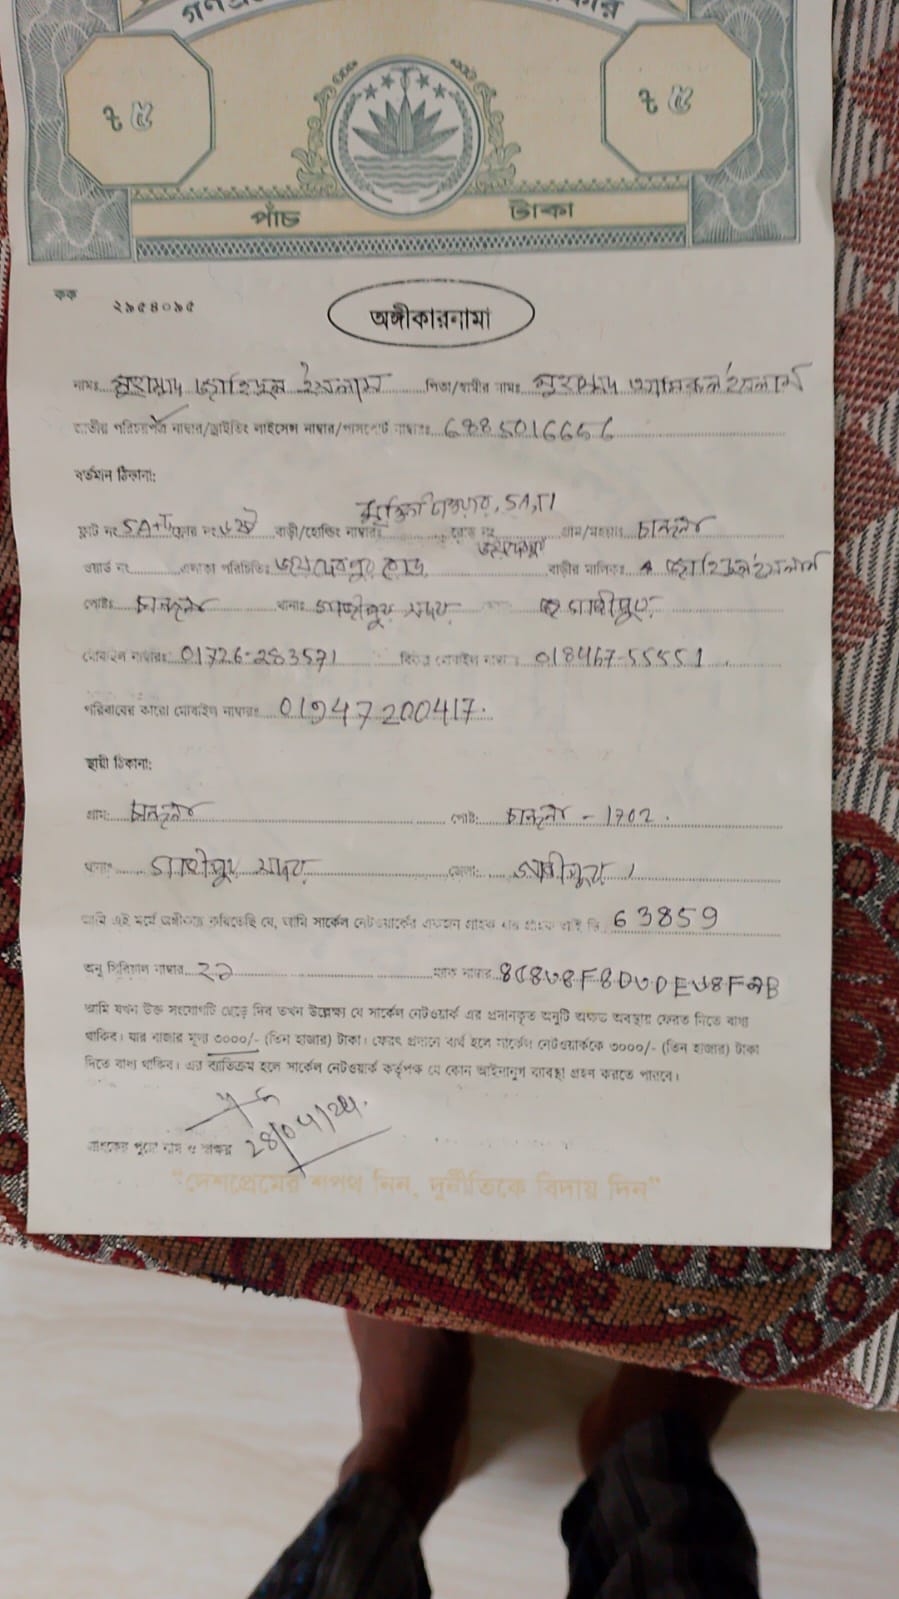 ৳ ৫ ৳ ৫
পাঁচ টাকা
কক ২৯৫৪০৯৫
অঙ্গীকারনামা
নামঃ মুহাম্মদ জাহিদুল ইসলাম পিতা/স্বামীর নামঃ মুহাম্মদ ইসলাম
জাতীয় পরিচয়পত্র নাম্বার/ড্রাইভিং লাইসেন্স নাম্বার/পাসপোর্ট নাম্বারঃ 6885016656
বর্তমান ঠিকানা:
টাওয়ার, SA, TI
ফ্লাট নং ফ্লোর নং ৬ষ্ঠ বাড়ী/হোল্ডিং নাম্বারঃ রোড নং গ্রাম/মহল্লাঃ চান্দনা
জয়দেবপুর
ওয়ার্ড নং এলাকা পরিচিতিঃ জয়দেবপুর রোড বাড়ীর মালিকঃ জাহিদুল ইসলাম
পোষ্টঃ চান্দনা থানাঃ গাজীপুর সদর গাজীপুর
মোবাইল নাম্বারঃ 01726-283571 বিকল্প মোবাইল নাম্বার 018467-55551
পরিবারের কারো মোবাইল নাম্বারঃ 01947200417.
স্থায়ী ঠিকানা:
গ্রাম: চান্দনা পোষ্ট: চান্দনা - 1702.
থানাঃ গাজীপুর সদর জেলা: গাজীপুর।
আমি এই মর্মে অঙ্গীকার করিতেছি যে, আমি সার্কেল নেটওয়ার্কের একজন গ্রাহক যার গ্রাহক আই ডি 63859
অনু সিরিয়াল নাম্বার ২৯ ম্যাক নাম্বার
আমি যখন উক্ত সংযোগটি ছেড়ে দিব তখন উল্লেক্ষ যে সার্কেল নেটওয়ার্ক এর প্রদানকৃত অনুটি অক্ষত অবস্থায় ফেরত দিতে বাধ্য
থাকিব। যার বাজার মূল্য ৩০০০/- (তিন হাজার) টাকা। ফেরৎ প্রদানে ব্যর্থ হলে সার্কেল নেটওয়ার্ককে ৩০০০/- (তিন হাজার) টাকা
দিতে বাধ্য থাকিব। এর ব্যতিক্রম হলে সার্কেল নেটওয়ার্ক কর্তৃপক্ষ যে কোন আইনানুগ ব্যাবস্থা গ্রহন করতে পারবে।
28/04/24.
গ্রাহকের পুরো নাম ও স্বাক্ষর
"দেশপ্রেমের শপথ নিন, দুর্নীতিকে বিদায় দিন"